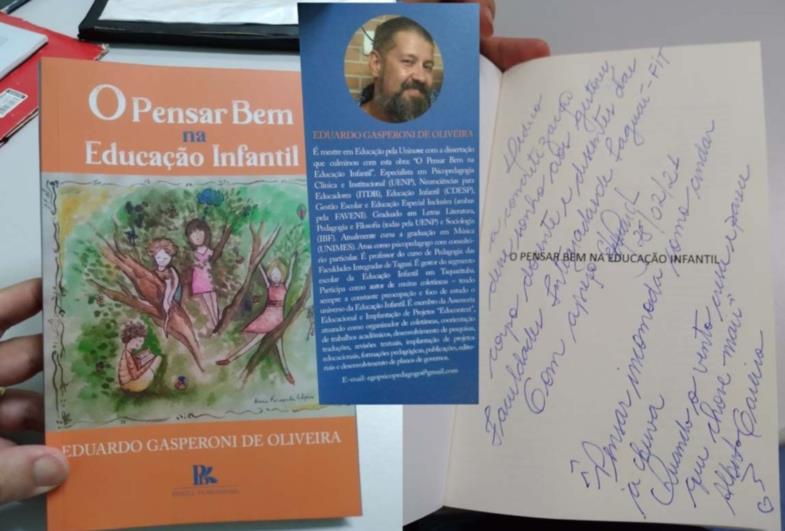 O Pensar Bem
na
Educação Infantil
EDUARDO GASPERONI DE OLIVEIRA
EDUARDO GASPERONI DE OLIVEIRA
É mestre em Educação pela Uninove com a dissertação
que culminou com esta obra: "O Pensar Bem na
Educação Infantil". Especialista em Psicopedagogia
Clínica e Institucional (UENP), Neurociências para
Educadores (ITDB), Educação Infantil (CDESP),
Gestão Escolar e Educação Especial Inclusiva (ambas
pela FAVENI). Graduado em Letras Literatura,
Pedagogia e Filosofia (todas pela UENP) e Sociologia
(IBF). Atualmente cursa a graduação em Música
(UNIMES). Atua como psicopedagogo com consultó-
rio particular. É professor do curso de Pedagogia das
Faculdades Integradas de Taguaí. É gestor do segmento
escolar da Educação Infantil em Taquarituba.
Participa como autor de muitas coletâneas – tendo
sempre a constante preocupação e foco de estudo o
universo da Educação Infantil. É membro da Assessoria
Educacional e Implantação de Projetos "Educontext",
atuando como organizador de coletâneas, coorientação
de trabalhos acadêmicos, desenvolvimento de pesquisas,
traduções, revisões textuais, implantação de projetos
educacionais, formações pedagógicas, publicações, edito-
riais e desenvolvimento de planos de governos.
E-mail: egopsicopedagogo@gmail.com
Dedico
a concretização
deste sonho aos gestores
corpo docente e discentes das
Faculdades Integradas de Taguaí - FIT
Com apreço
25/02/21
O PENSAR BEM NA EDUCAÇÃO INFANTIL
"Pensar incomoda como andar
à chuva
Quando o vento cresce e parece
que chove mais"
Alberto Caeiro